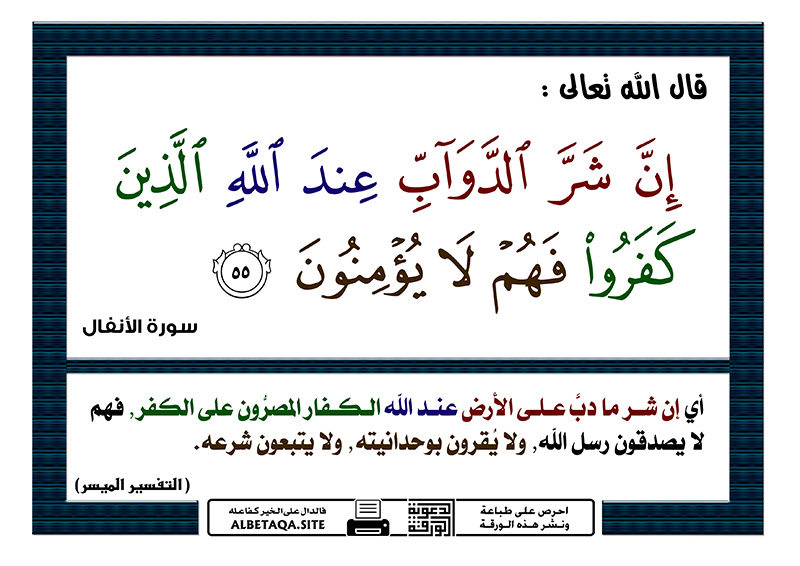 قال الله تعالى :
إِنَّ شَرَّ ٱلدَّوَآبِّ عِندَ ٱللَّهِ ٱلَّذِينَ
كَفَرُوا۟ فَهُمْ لَا يُؤْمِنُونَ ٥٥
سورة الأنفال
أي إن شـر ما دبَّ عـلـى الأرض عنـد الله الـكـفار المصرُّون على الكفر, فهم
لا يصدقون رسل الله, ولا يُقرون بوحدانيته, ولا يتبعون شرعه.
( التفسير الميسر)
احرص على طباعة
ونشر هذه الورقة
الورقة
الدعوية
فالدال على الخير كفاعله
ALBETAQA.SITE